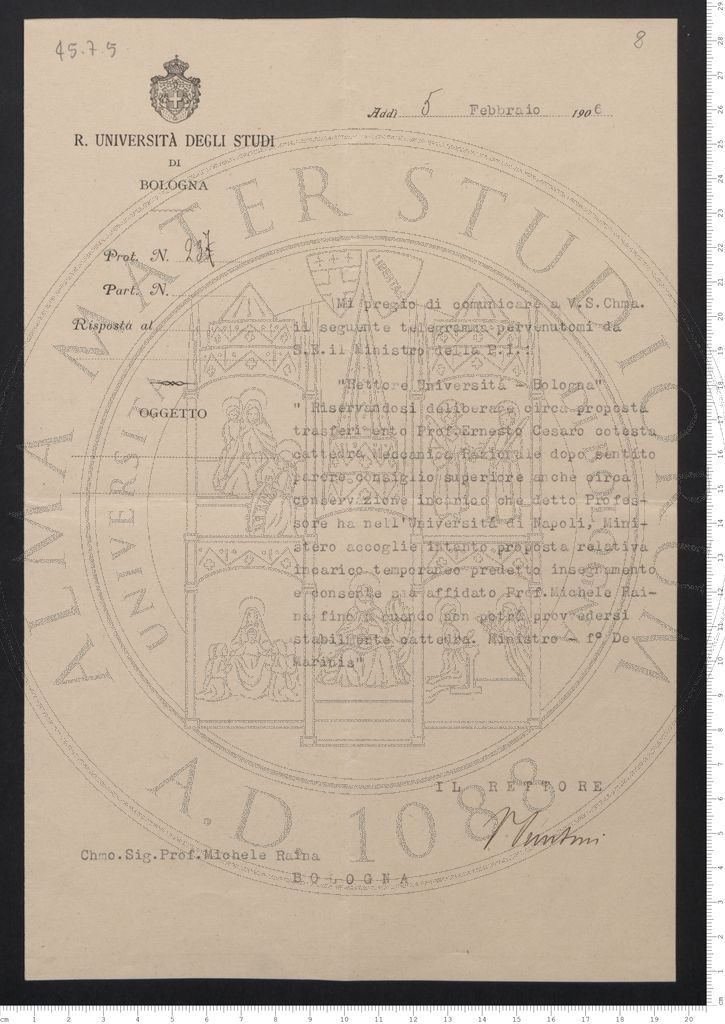 45.7.5
8
Addì 5 Febbraio 1906
R. UNIVERSITÀ DEGLI STUDI
DI
BOLOGNA
Prot. N. 237
Part. N.
Risposta al
OGGETTO
Mi pregio di comunicare a V.S.Chma.
il seguente telegramma pervenutomi da
S.E.il Ministro della P.I.:
"Rettore Università - Bologna"
" Riservandosi deliberare circa proposta
trasferimento Prof.Ernesto Cesaro cotesta
cattedra Meccanica Razionale dopo sentito
parere consiglio superiore anche circa
conservazione incarico che detto Profes-
sore ha nell'Università di Napoli, Mini-
stero accoglie intanto proposta relativa
incarico temporaneo predetto insegnamento
e consente sia affidato Prof.Michele Rai-
na fino a quando non potrà provvedersi
stabilmente cattedra. Ministro - f° De
Marinis"
IL RETTORE
Chmo.Sig.Prof.Michele Raina
BOLOGNA
ALMA MATER STUDIORUM
UNIVERSITA
LIBERTAS
A.D. 1088